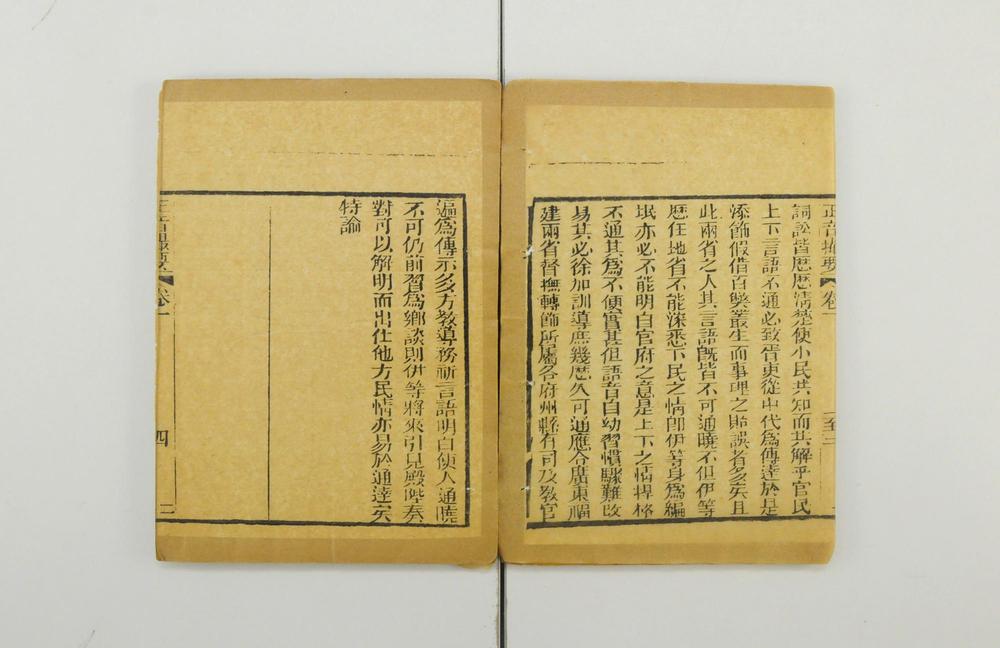 正音撮要
卷一
至三
詞訟皆厯厯清楚使小民共知而共解乎官民
上下言語不通必致胥吏從中代爲傳逹於是
添飾假借百獘叢生而事理之貽誤者多矣且
此兩省之人其言語旣皆不可通曉不但伊等
歷任他省不能深悉下民之情卽伊等身爲編
氓亦必不能明白官府之意是上下之情捍格
不通其爲不便實甚但語音自幼習慣驟難改
易其必徐加訓導庶幾厯久可通應令廣東福
建兩省督撫轉飾所屬各府州縣有司及敎官
遍爲傳示多方敎導務祈言語明白使人通曉
不可仍前習爲鄉談則伊等將來引見殿陛奏
對可以解明而出仕他方民情亦易於通逹矣
特諭
正音撮要
卷一
四